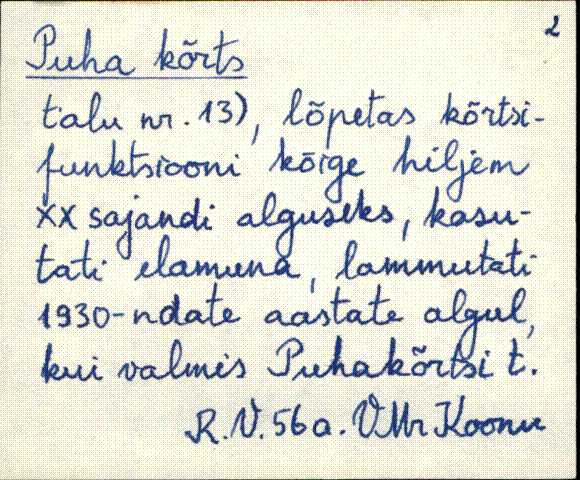 2
Puha kõrts
talu nr. 13), lõpetas kõrtsi-
funktsiooni kõige hiljem
XX sajandi alguseks, kasu-
tati elamuna, lammutati
1930-ndate aastate algul,
kui valmis Puhakõrtsi t.
R.V. 56 a. VMr Koonu